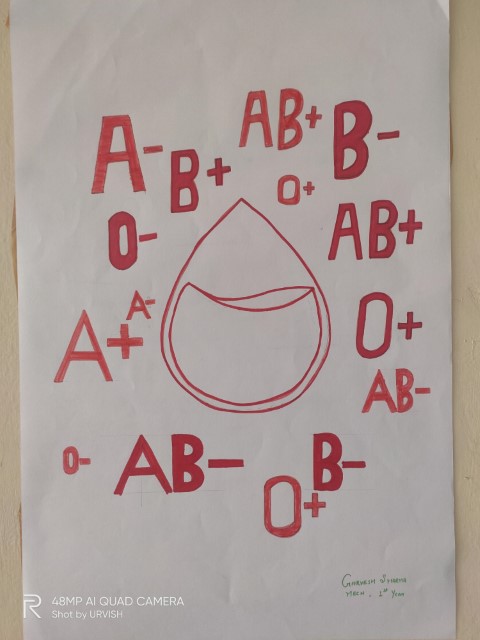 AB+
A-
B-
B+
O+
O-
AB+
A-
A+
O+
AB-
O-
AB-
B-
O+
MECH, 1st YEAR
48MP AI QUAD CAMERA
Shot by URVISH